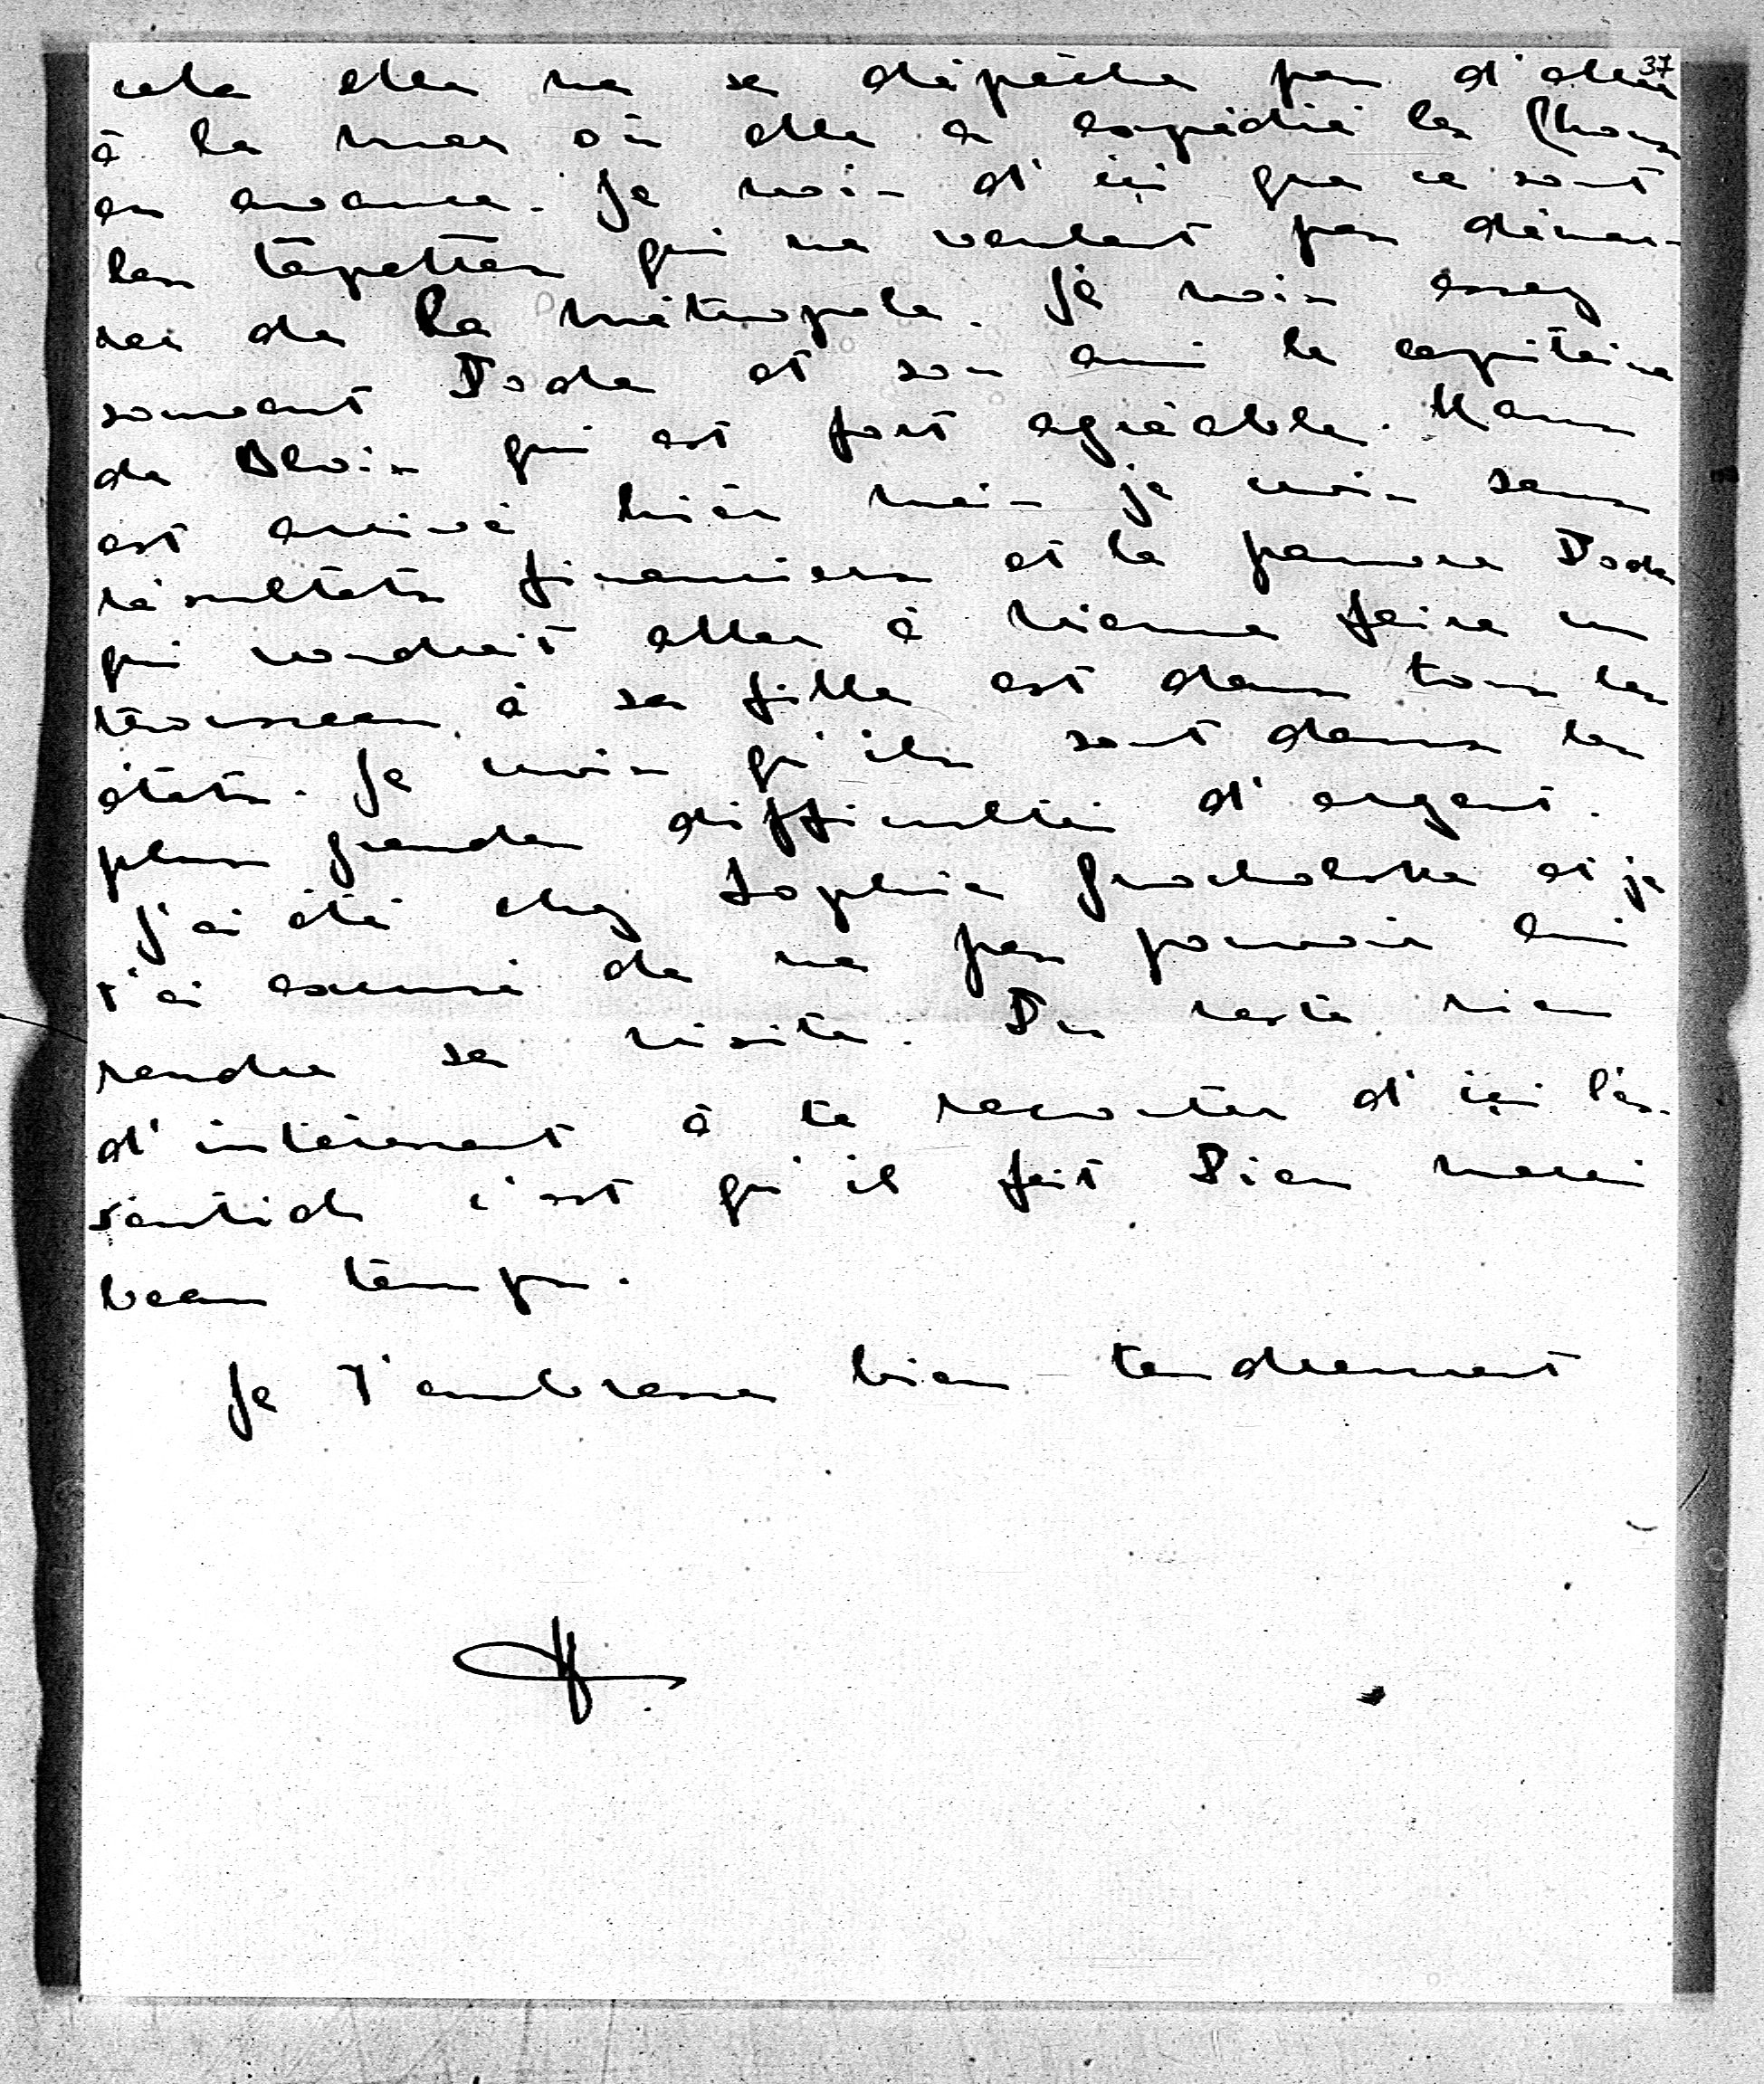 37
cela elle ne se dépêche pas d'aller
à la mer où elle a expédié les Choux
en avance. Je vois d'içi que ce sont
les tapettes qui ne veulent pas démar-
rer de la métropole. Je vois assez
souvent Doda et son ami le capitaine
de Blois qui est fort agréable. Hans
est arrivé hier mais je crois sans
résultats financiers et la pauvre Doda
qui voudrait aller à Vienne faire un
trousseau à sa fille est dans tous les
états. Je crois qu'ils sont dans les
plus grandes difficultés d'argent.
J'ai été chez Sophie Grocholska et je
t'ai excusé de ne pas pouvoir lui
rendre sa visite. Du reste rien
d'intéressant à te raconter d'içi l'es-
sentiel c'est qu'il fait Dieu merci
beau temps.
Je t'embrasse bien tendrement